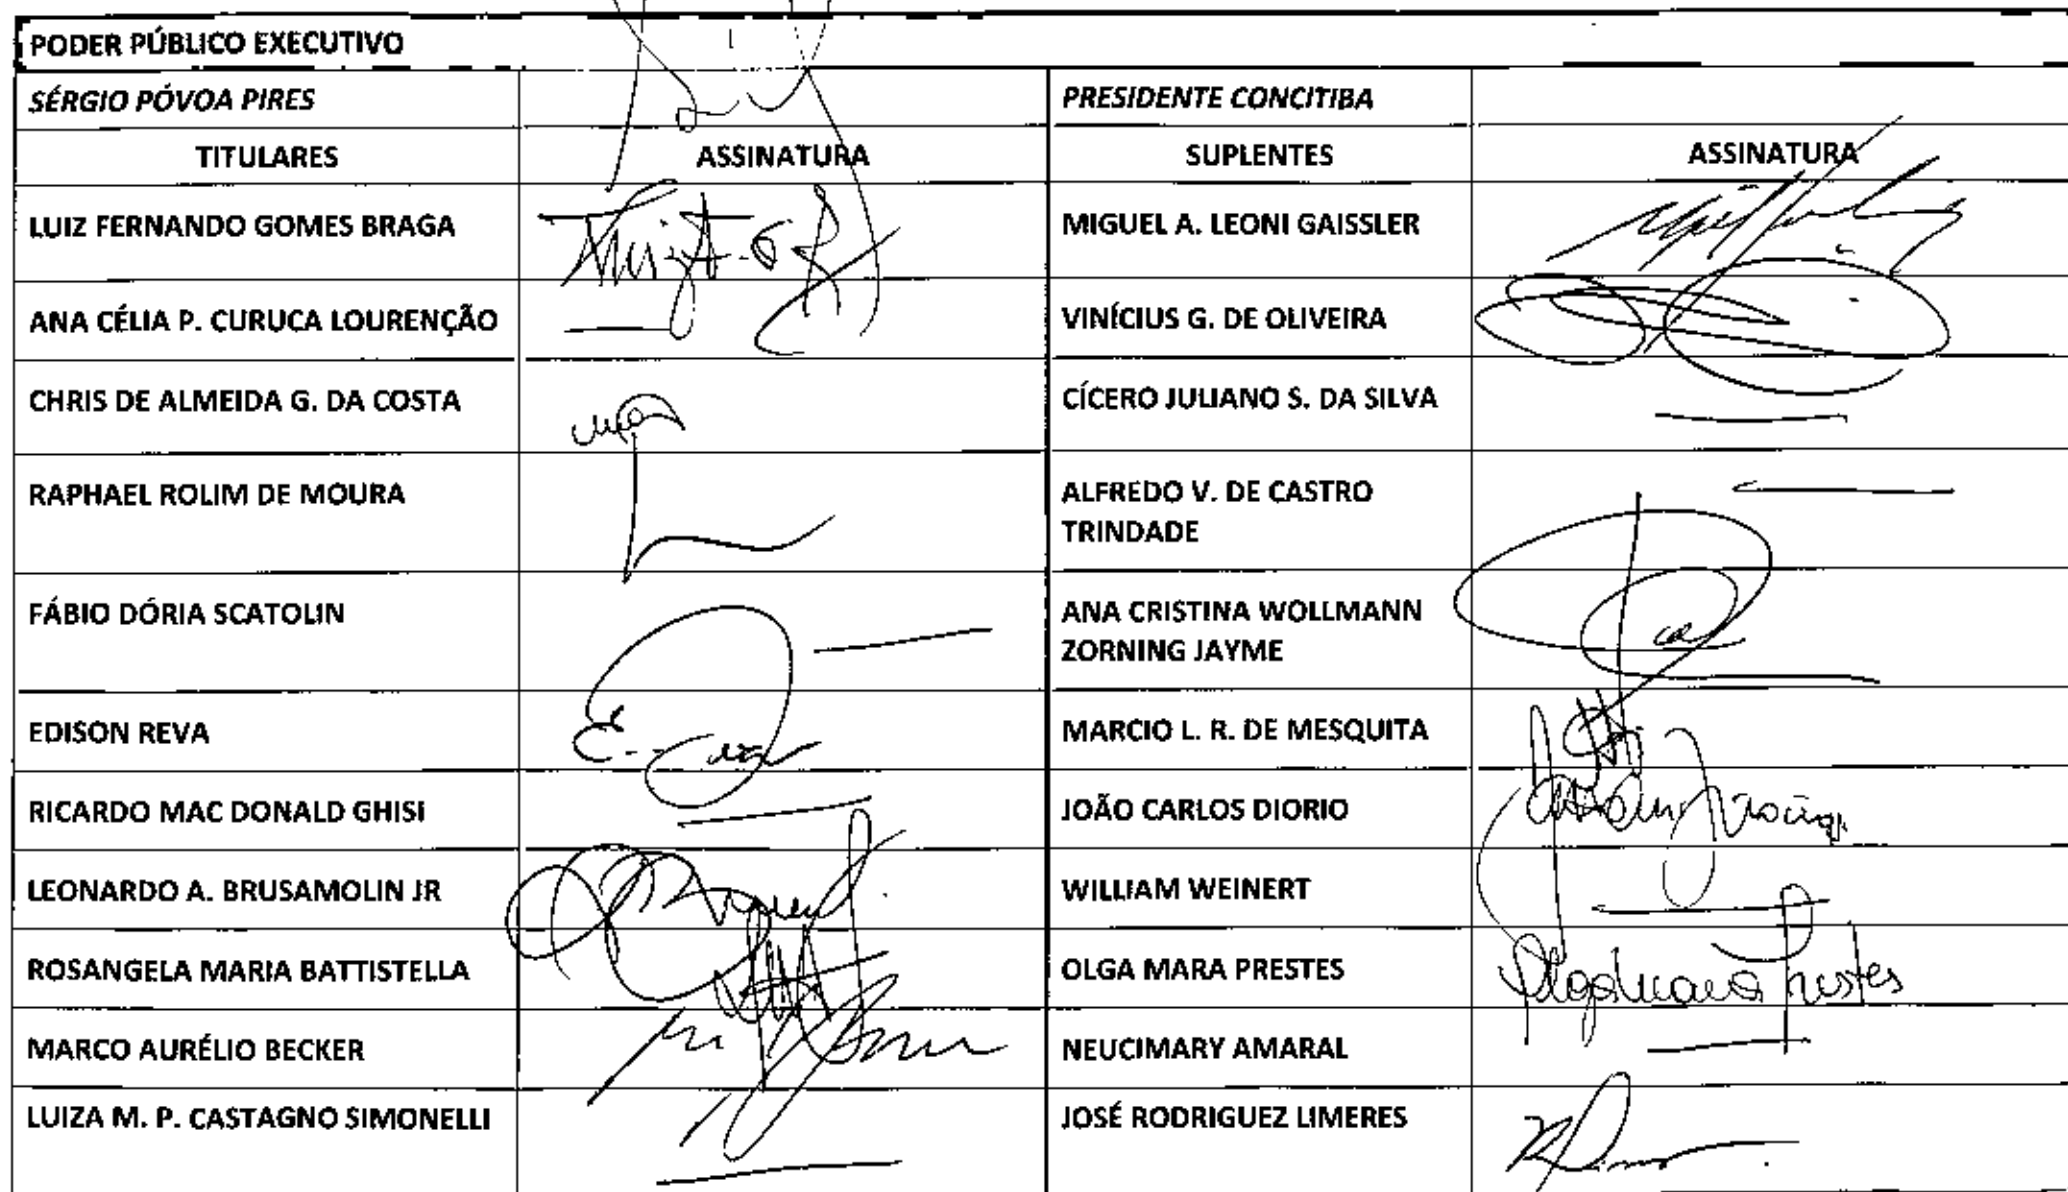 PODER PÚBLICO EXECUTIVO
SÉRGIO PÓVOA PIRES PRESIDENTE CONCITIBA
TITULARES ASSINATURA SUPLENTES ASSINATURA
LUIZ FERNANDO GOMES BRAGA MIGUEL A. LEONI GAISSLER
ANA CÉLIA P. CURUCA LOURENÇÃO VINÍCIUS G. DE OLIVEIRA
CHRIS DE ALMEIDA G. DA COSTA CÍCERO JULIANO S. DA SILVA
RAPHAEL ROLIM DE MOURA ALFREDO V. DE CASTRO
TRINDADE
FÁBIO DÓRIA SCATOLIN ANA CRISTINA WOLLMANN
ZORNING JAYME
EDISON REVA MARCIO L. R. DE MESQUITA
RICARDO MAC DONALD GHISI JOÃO CARLOS DIORIO
LEONARDO A. BRUSAMOLIN JR WILLIAM WEINERT
ROSANGELA MARIA BATTISTELLA OLGA MARA PRESTES Olga Mara Prestes
MARCO AURÉLIO BECKER NEUCIMARY AMARAL
LUIZA M. P. CASTAGNO SIMONELLI JOSÉ RODRIGUEZ LIMERES